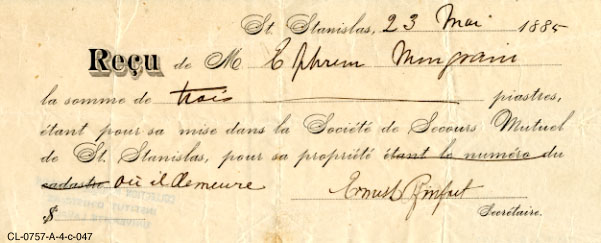 St. Stanislas, 23 Mai 1885
Reçu de M Ephrem Mongrain
la somme de trois piastres,
étant pour sa mise dans la Société de Secours Mutuel
de St. Stanislas, pour sa propriété étant le numéro du
cadastre où il demeure
Ernest Rinfret
$
Secrétaire.
CL-0757-A-4-c-047